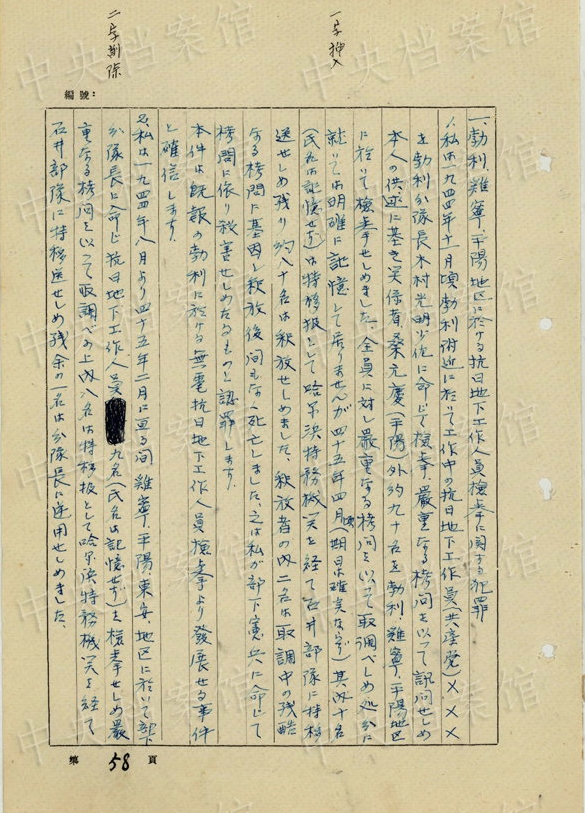 一字挿入
二字削除
編號：
一、勃利、雞寧、平陽地区に於ける抗日地下工作人員検挙に関する犯罪
1、私は一九四四年十一月頃勃利附近に於いて工作中の抗日地下工作員（共産党）×××
を勃利分隊長木村光明少佐に命じて検挙、厳重なる拷問を以って訊問せしめ
本人の供述に基き関係者桑元慶（平陽）外約九十名を勃利、雞寧、平陽地区
に於いて検挙せしめました、全員に対し厳重なる拷問を以って取調べしめ処分に
就いては明確に記憶して居りませんが四十五年四月頃（期日は確実ならず）其内十名
（氏名は記憶せず）は特移扱として哈尔浜特務機関を経て石井部隊に特移
送せしめ残り約八十名は釈放せしめました、釈放者の内二名は取調中の残酷
なる拷問に基因し釈放後間もなく死亡しました、之は私が部下憲兵に命じて
拷問に依り殺害せしめたるものと認罪します、
本件は既報の勃利に於ける無電抗日地下工作人員検挙より発展せる事件
と確信します、
2、私は一九四四年八月より四十五年二月に亘る間雞寧、平陽、東安地区に於いて部下
分隊長に命じ抗日地下工作人員九名（氏名は記憶せず）を検挙せしめ厳
重なる拷問を以って取調べの上内八名は特移扱として哈尔浜特務機関を経て
石井部隊に特移送せしめ残余の一名は分隊長に逆用せしめました、
第 58 頁
中央档案馆